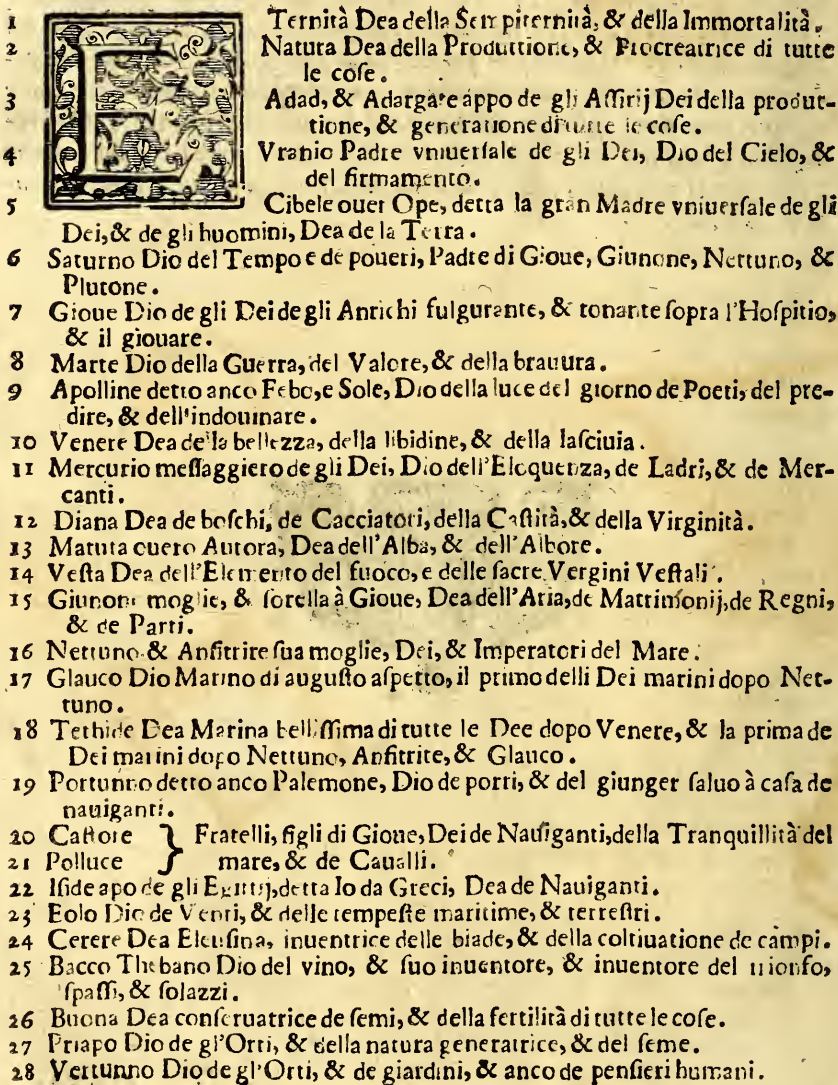 1 ETernità Dea della Sempiternità, & della Immortalità.
2 Natura Dea della Produttione, & Procreatrice di tutte
le cose.
3 Adad, & Adargate appo de gli Assirij Dei della produt-
tione, & generatione di tutte le cose.
4 Vranio Padre vniuersale de gli Dei, Dio del Cielo, &
del firmamento.
5 Cibele ouer Ope, detta la gran Madre vniuersale de gli
Dei, & de gli huomini, Dea de la Terra.
6 Saturno Dio del Tempo e de poueri, Padre di Gioue, Giunone, Nettuno, &
Plutone.
7 Gioue Dio de gli Dei de gli Antichi fulgurante, & tonante sopra l'Hospitio,
& il giouare.
8 Marte Dio della Guerra, del Valore, & della brauura.
9 Apolline detto anco Febo, e Sole, Dio della luce del giorno de Poeti, del pre-
dire, & dell'indouinare.
10 Venere Dea de la bellezza, della libidine, & della lasciuia.
11 Mercurio messaggiero de gli Dei, Dio dell'Eloquenza, de Ladri, & de Mer-
canti.
12 Diana Dea de boschi, de Cacciatori, della Castità, & della Virginità.
13 Matuta ouero Aurora, Dea dell'Alba, & dell'Albore.
14 Vesta Dea dell'Elemento del fuoco, e delle sacre Vergini Vestali.
15 Giunone moglie, & sorella à Gioue, Dea dell'Aria, de Matrimonij, de Regni,
& de Parti.
16 Nettuno & Anfitrite sua moglie, Dei, & Imperatori del Mare.
17 Glauco Dio Marino di augusto aspetto, il primo delli Dei marini dopo Net-
tuno.
18 Tethide Dea Marina bellissima di tutte le Dee dopo Venere, & la prima de
Dei marini dopo Nettuno, Anfitrite, & Glauco.
19 Portunno detto anco Palemone, Dio de porti, & del giunger saluo à casa de
nauiganti.
20 Castore } Fratelli, figli di Gioue, Dei de Nauiganti, della Tranquillità del
21 Polluce } mare, & de Caualli.
22 Iside apo de gli Egittij, detta Io da Greci, Dea de Nauiganti.
23 Eolo Dio de Venti, & delle tempeste maritime, & terrestri.
24 Cerere Dea Eleusina, inuentrice delle biade, & della coltiuatione de campi.
25 Bacco Thebano Dio del vino, & suo inuentore, & inuentore del trionfo,
spassi, & solazzi.
26 Buona Dea conseruatrice de semi, & della fertilità di tutte le cose.
27 Priapo Dio de gl'Orti, & della natura generatrice, & del seme.
28 Vertunno Dio de gl'Orti, & de giardini, & anco de pensieri humani.